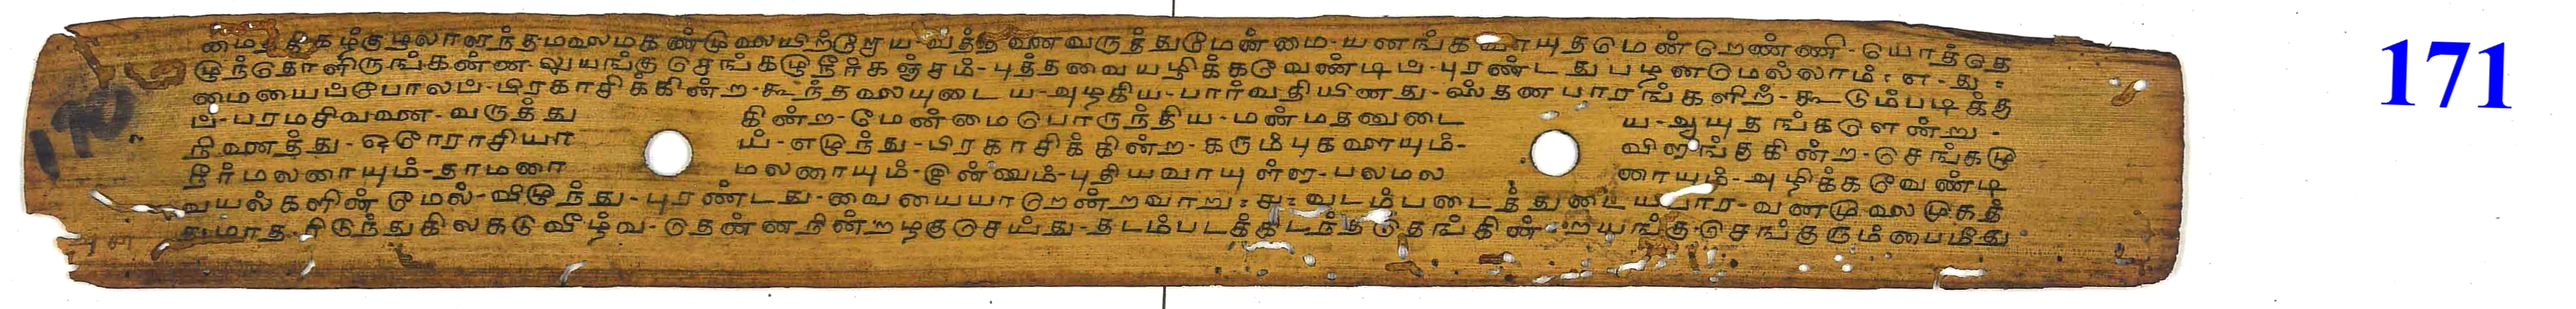 மைந் திகழ்குழலாளந்தமலைமகண்முலையிற்றோய-வத்தனைவருத்துமேன்மை-யனங்க வாயுதமென்றெண்ணி-யொத்தெ
ழுந்தொளிருங்கன்னலுயங்குசெங்கழுநீர்கஞ்சம்-புத்தவையழிக்கவேண்டிப்-புரண்டதுபழனமெல்லாம்: எ-து:
மையைப்போலப்-பிரகாசிக்கின்ற-கூந்தலையுடைய-அழகிய-பார்வதியினது-ஸ்தனபாரங்களிற்-கூடும்படிக்கு
ப்-பரமசிவனை-வருத்து கின்ற-மேன்மைபொருந்திய-மன்மதனுடை ய-ஆயுதங்களென்று-
நினைத்து-ஒரோராசியா ய்-எழுந்து-பிரகாசிக்கின்ற-கரும்புகளையும்- விளங்குகின்ற-செங்கழு
நீர்மலரையும்-தாமரை மலரையும்-இன்னம்-புதியவாயுள்ள-பலமல ரையும்-அழிக்கவேண்டி
வயல்களின்மேல்-வீழ்ந்து-புரண்டது-வையையாறென்றவாறு: வடம்படைத்துடைய பார-வனமுலைமுகத்
துமாத ரிடுந்துகிலகடுவீழ்வ-தென்னநின்றழகுசெய்து-தடம்படக்கிடந்ததெங்கின் றயங்கு-செங்குரும்பைமீது